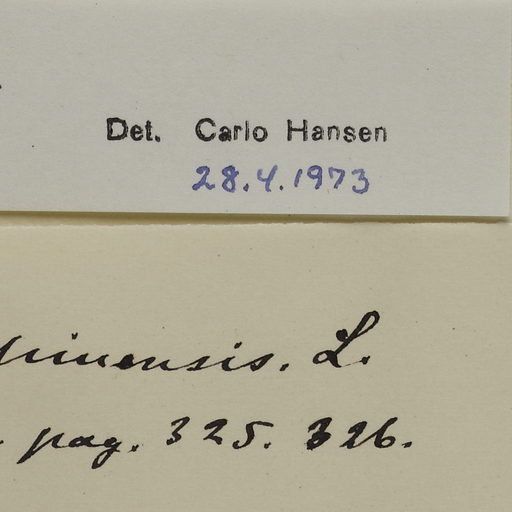 Det. Carlo Hansen
28.4.1973
hinensis. L.
pag. 325. 326.